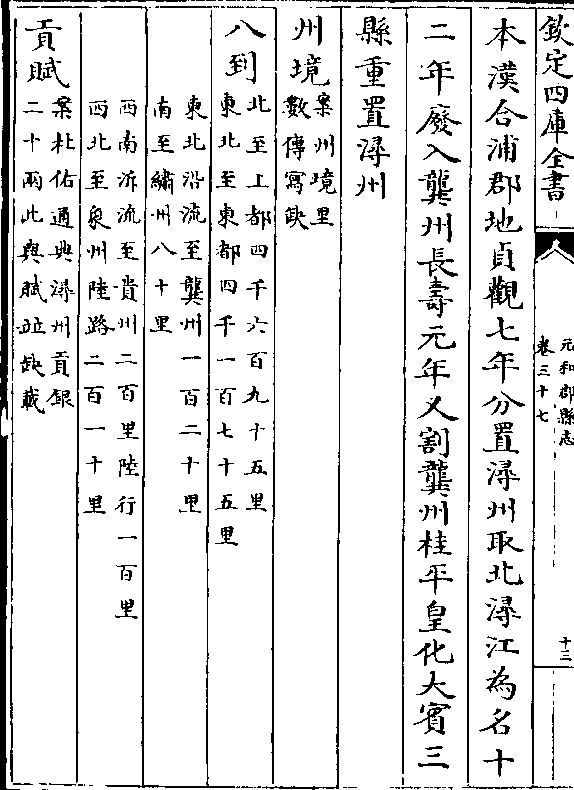 欽定四庫全書
元和郡縣志
卷三十七
十三
本漢合浦郡地貞觀七年分置潯州取北潯江為名十
二年廢入龔州長壽元年又割龔州桂平皇化大賓三
縣重置潯州
州境案州境里
數傳寫缺
八到北至上都四千六百九十五里
東北至東都四千一百七十五里
東北沿流至龔州一百二十里
南至繡州八十里
西南泝流至貴州二百里陸行一百里
西北至象州陸路二百一十里
貢賦案杜佑通典潯州貢銀
二十兩此與賦並缺載